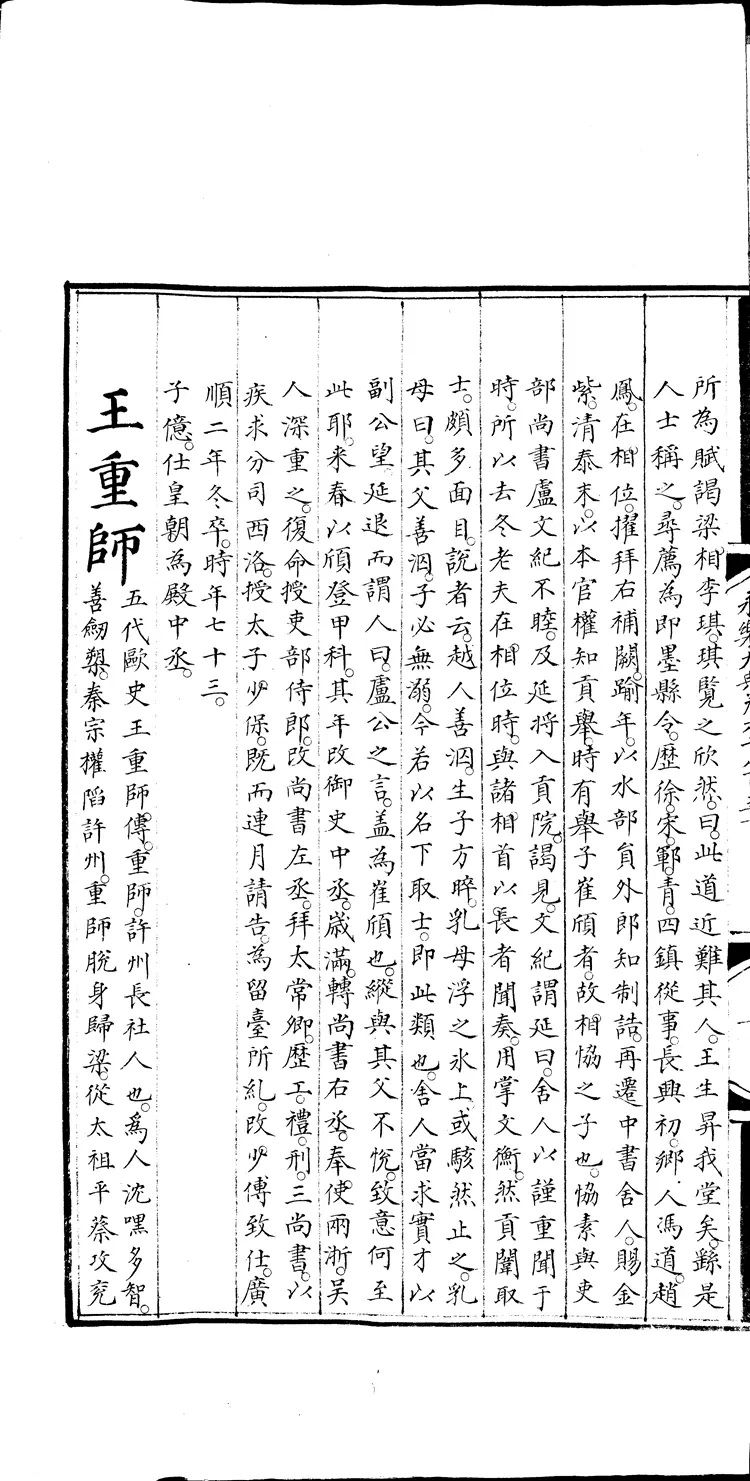 所為賦謁梁相李琪。琪覽之欣然。曰。此道近難其人。王生昇我堂矣。繇是
人士稱之。尋薦為即墨縣令。歷徐。宋。鄆。青。四鎮從事。長興初。鄉人馮道。趙
鳳。在相位。擢拜右補闕。踰年。以水部員外郎知制誥。再遷中書舍人。賜金
紫。清泰末。以本官權知貢舉。時有舉子崔頎者。故相恊之子也。恊素與吏
部尚書盧文紀不睦。及延將入貢院。謁見。文紀謂延曰。舍人以謹重聞于
時。所以去冬老夫在相位時。與諸相首以長者聞奏。用掌文衡。然貢闈取
士。頗多面目。說者云。越人善泅。生子方晬。乳母浮之水上。或駭然止之。乳
母曰。其父善泅。子必無溺。今若以名下取士。即此類也。舍人當求實才以
副公望。延退而謂人曰。盧公之言。盖為崔頎也。縱與其父不悅。致意何至
此耶。來春以頎登甲科。其年改御史中丞。歲滿。轉尚書右丞。奉使兩浙。吳
人深重之。復命授吏部侍郎。改尚書左丞。拜太常卿。歷工。禮。刑。三尚書。以
疾求分司西洛。授太子少保。既而連月請告。為留臺所糺。改少傅致仕。廣
順二年冬卒。時年七十三。
子億。仕皇朝為殿中丞。
王重師
五代歐史王重師。傳。重師。許州長社人也。為人沈嘿多智。
善劒槊。秦宗權陷許州。重師脫身歸梁。從太祖平蔡攻兖